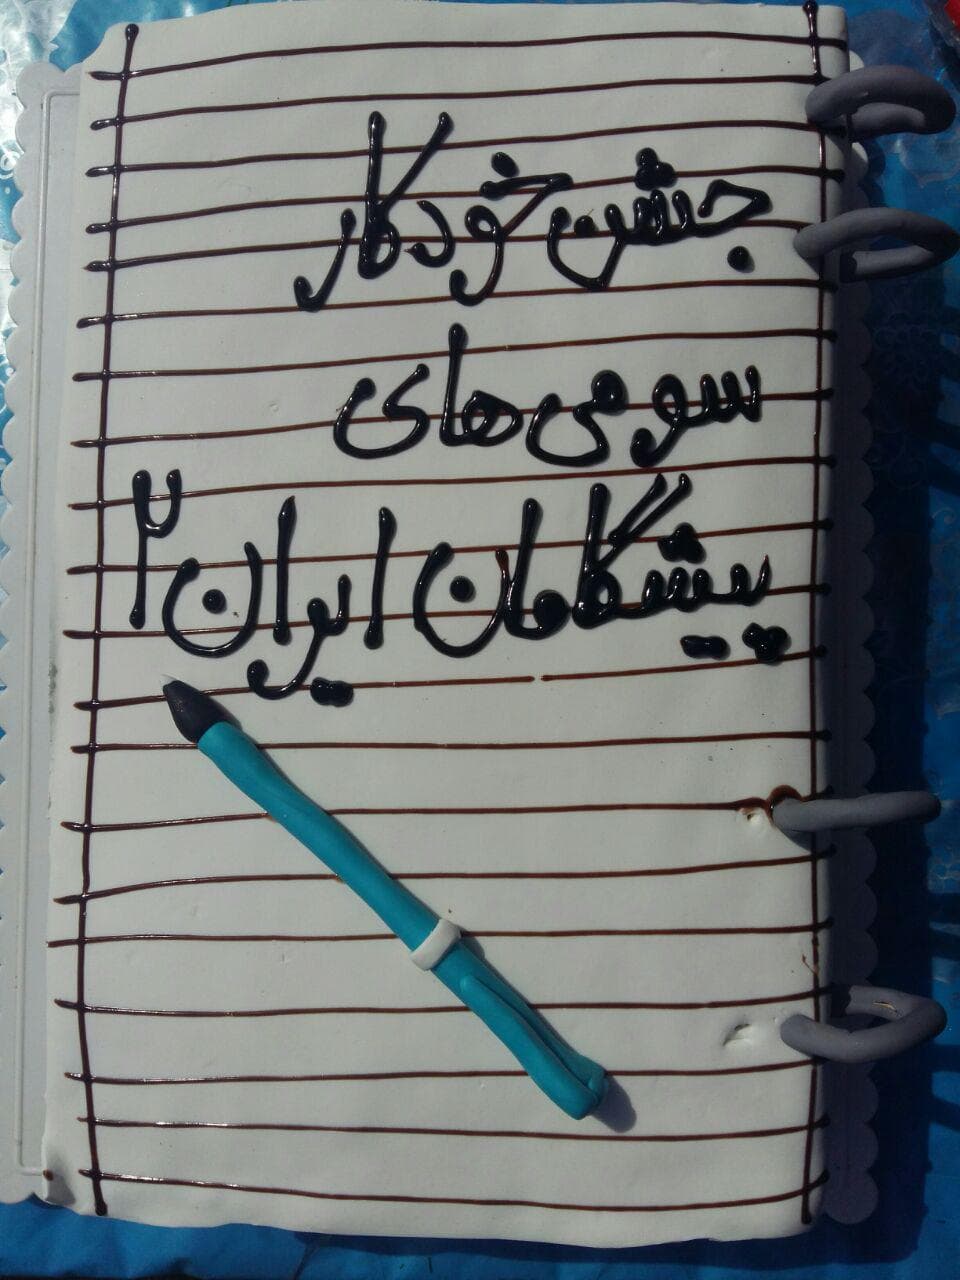 جشن خودکار
سومی های
پیشگامان ایران ۲